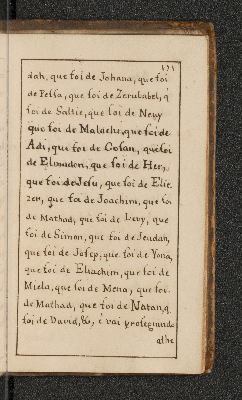 dah, que foi de Johana, que foi
de Pesa, que foi de Zerubabel, q
foi de Saltie, que foi de Nery
que foi de Malachi, que foi de
Adi, que foi de Cosan, que foi
de Elmadon, que foi de Her,
que foi de Jesu, que foi de Elie
zer, que foi de Joachim, que foi
de Mathad, que foi de Levy, que
foi de Simon, que foi de Joudah,
que foi de Josep, que foi de Yona,
que foi de Eliachim, que foi de
Miela, que foi de Mena, que foi
de Mathad, que foi de Natan, q.
foi de David, &, i vai prosseguindo
athe